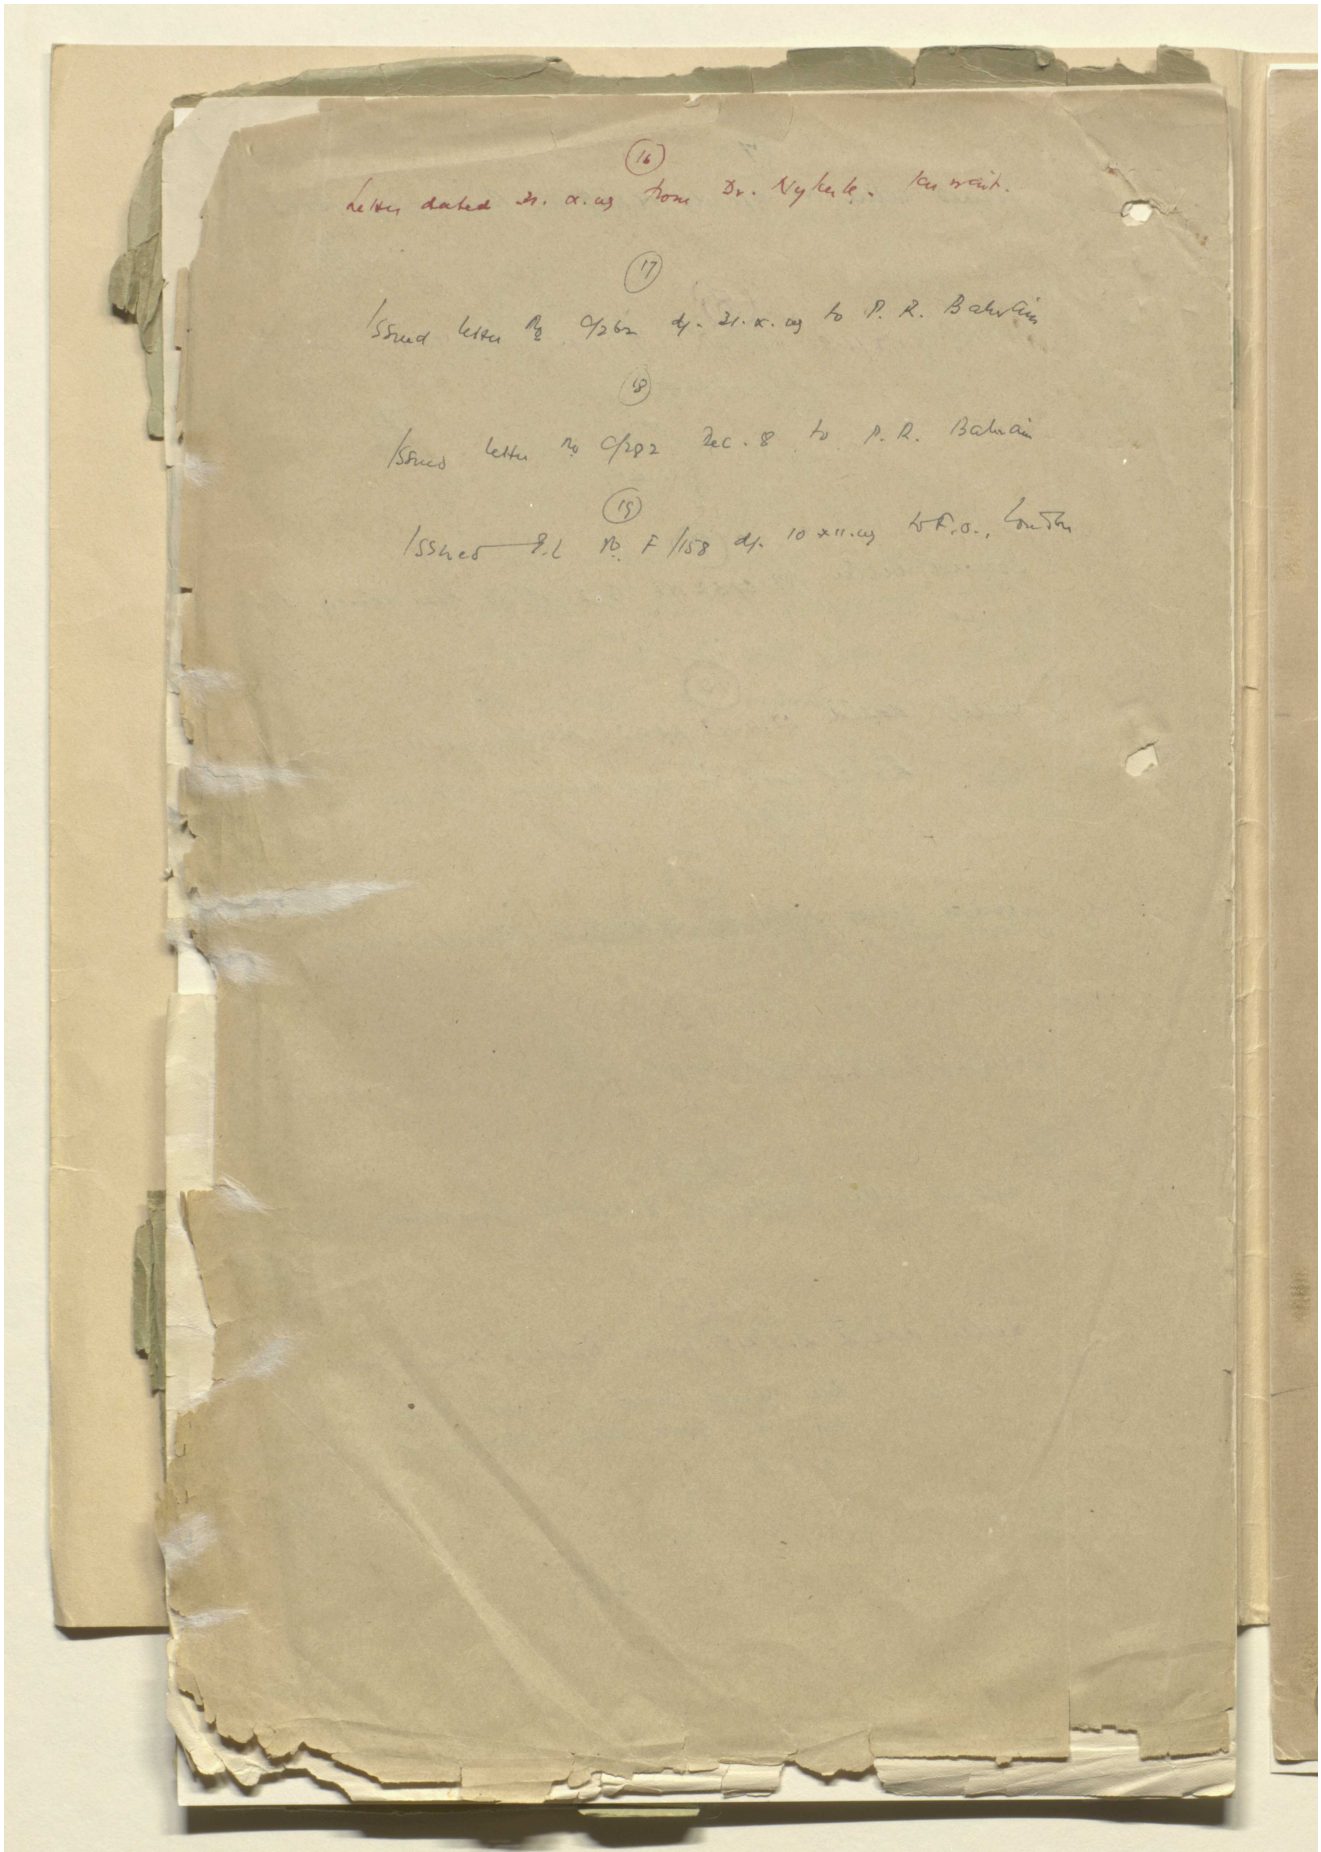 16
Letter dated 21. x. 49 from Dr. Nykerk. Kuwait.
17
Issued letter No C/262 d/. 21. x. 49 to P. R. Bahrain
18
Issued letter No C/282 Dec. 8 to P. R. Bahrain
19
Issued E.L No F/158 d/. 10 xii. 49 to F.O., London